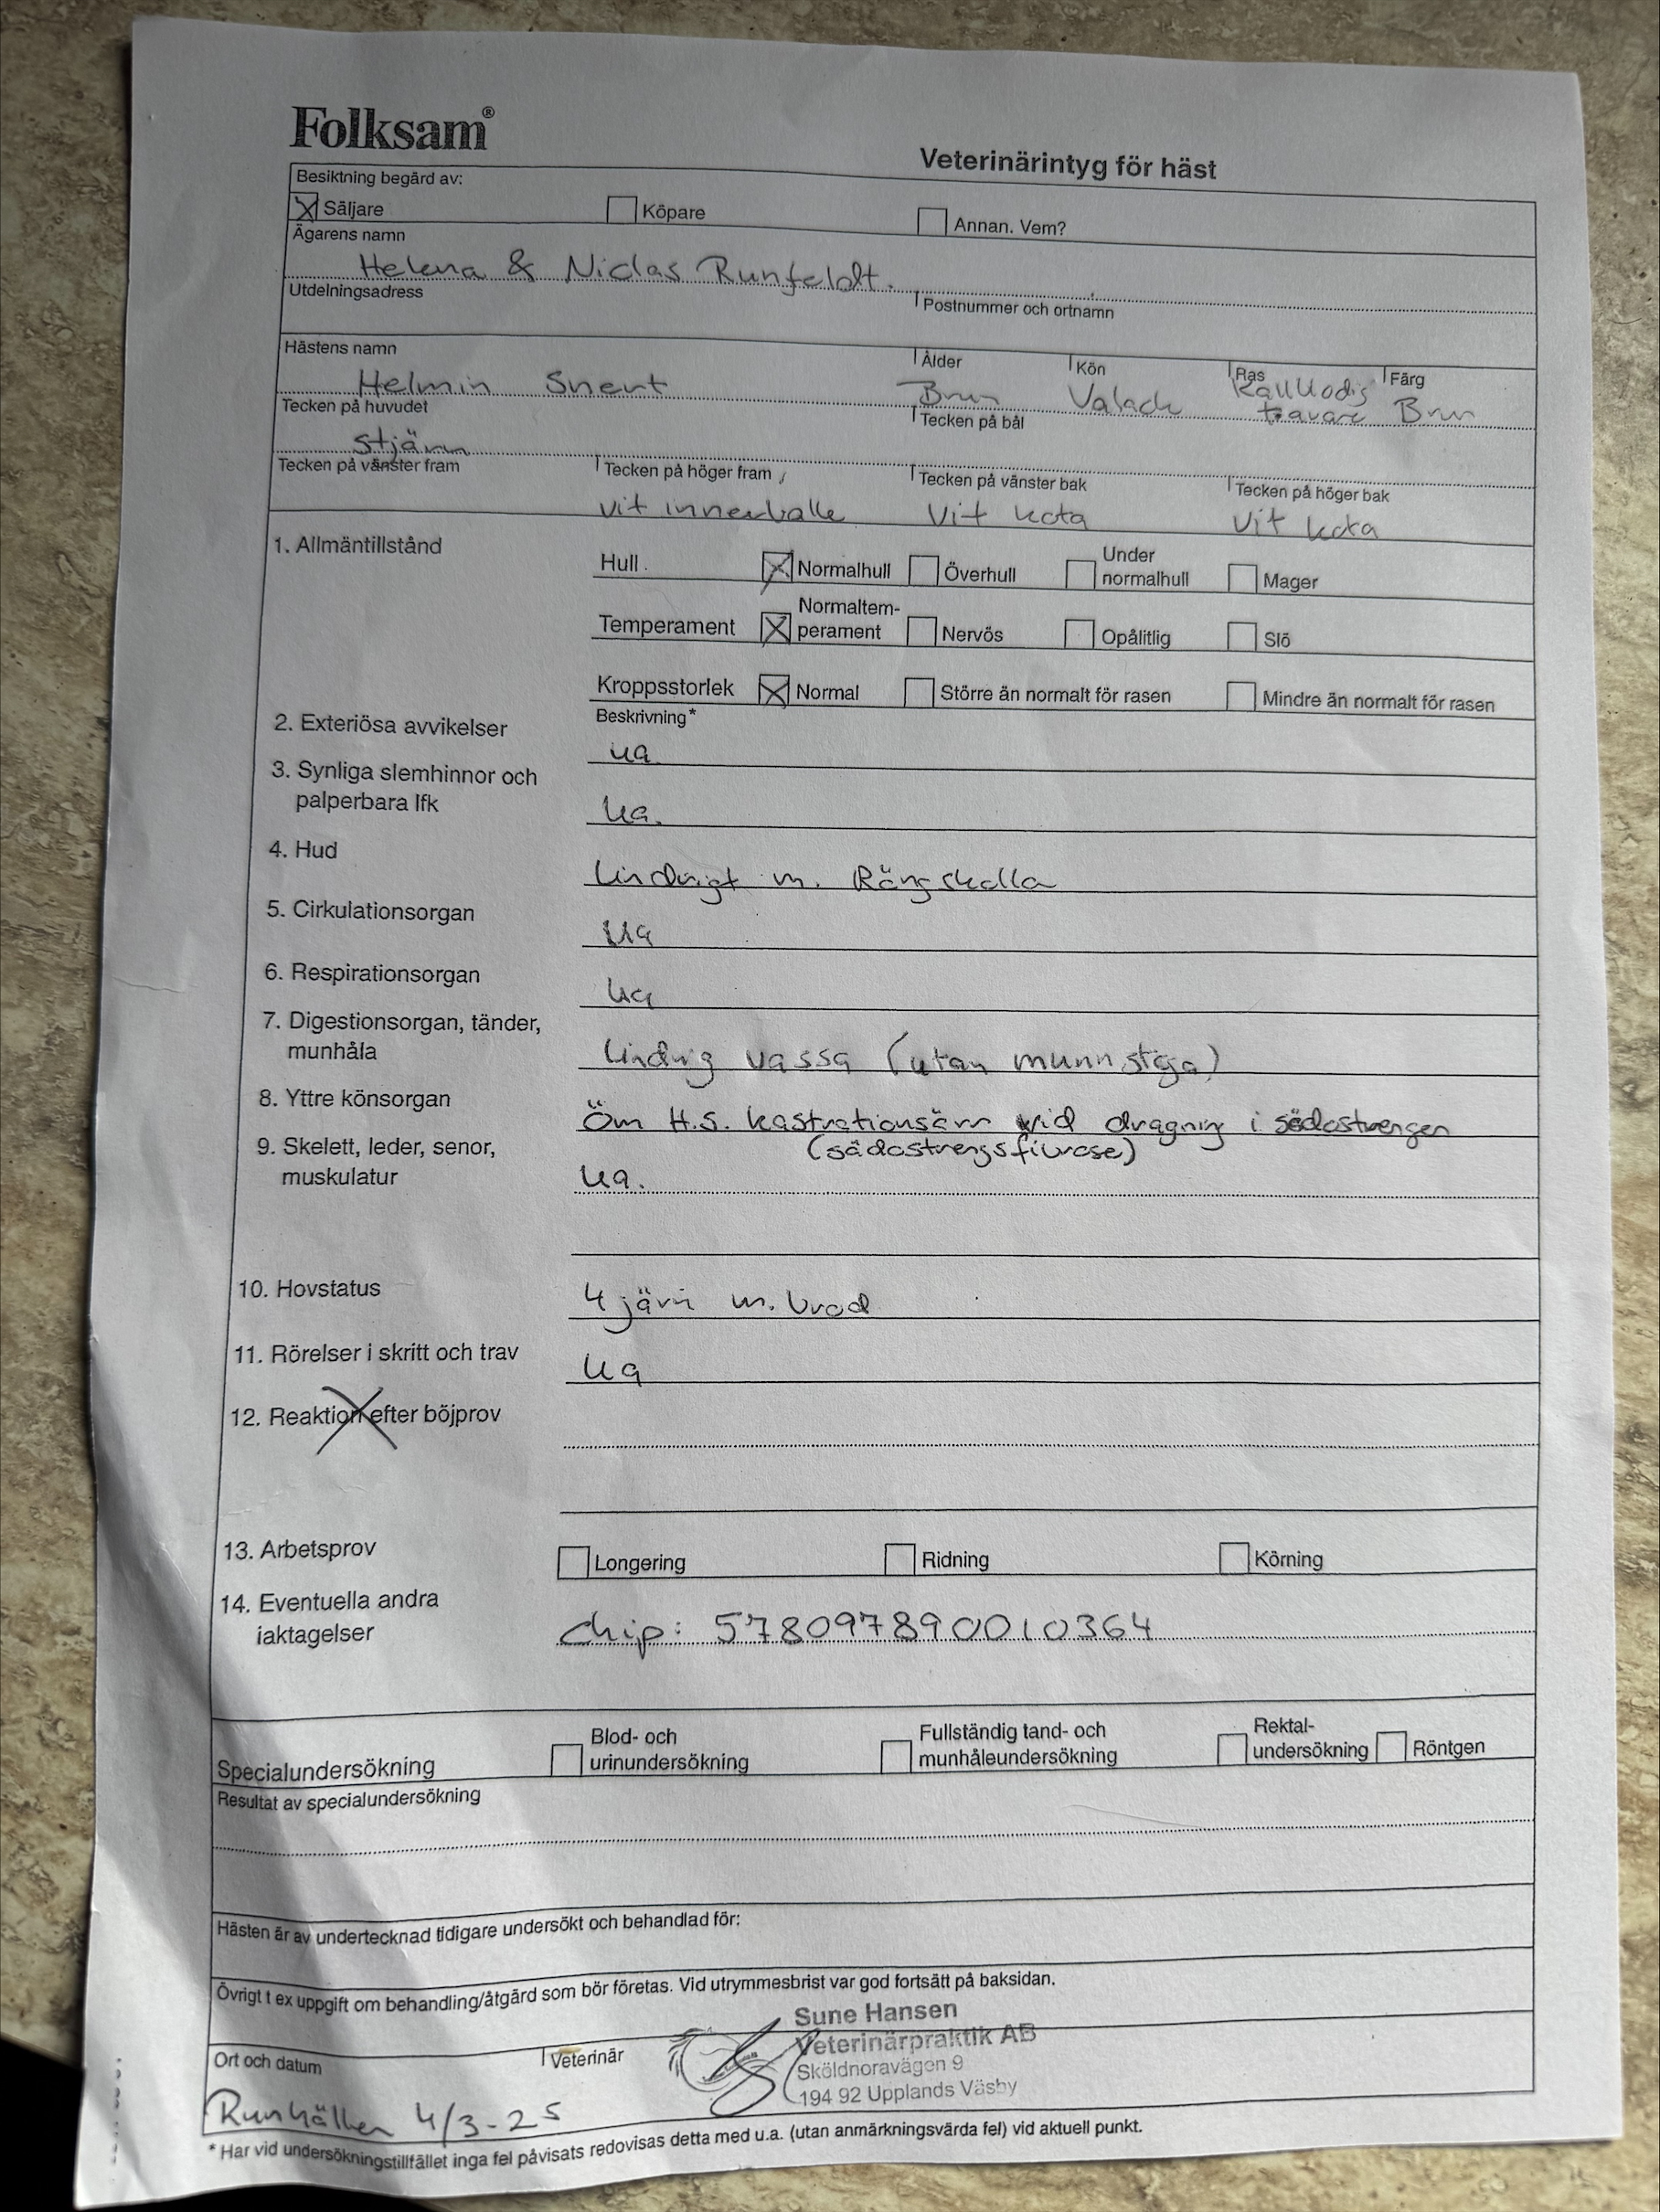 Folksam®
Veterinärintyg för häst
Besiktning begärd av:
Säljare Köpare Annan. Vem?
Ägarens namn
Helena & Niclas Runfeldt.
Utdelningsadress Postnummer och ortnamn
Hästens namn Ålder Kön Ras Färg
Helmin Snert Brun Valack Kallblodig travare Brun
Tecken på huvudet Tecken på bål
stjärn
Tecken på vänster fram Tecken på höger fram Tecken på vänster bak Tecken på höger bak
vit innerballe vit kota vit kota
1. Allmäntillstånd
Hull Normalhull Överhull Under normalhull Mager
Temperament Normaltem-perament Nervös Opålitlig Slö
Kroppsstorlek Normal Större än normalt för rasen Mindre än normalt för rasen
Beskrivning*
2. Exteriösa avvikelser
ua
3. Synliga slemhinnor och
palperbara lfk
ua.
4. Hud
Lindrigt m. Rängskålla
5. Cirkulationsorgan
ua
6. Respirationsorgan
ua
7. Digestionsorgan, tänder,
munhåla
Lindrig vassa (utan munnstega)
8. Yttre könsorgan
Öm H.S. kastrationsärr vid dragning i sädesstrengen
(sädesstrengsfibrose)
9. Skelett, leder, senor,
muskulatur
ua.
10. Hovstatus
4 järn m. brod
11. Rörelser i skritt och trav
ua
12. Reaktion efter böjprov
13. Arbetsprov Longering Ridning Körning
14. Eventuella andra
iaktagelser
chip: 578097890010364
Specialundersökning
Blod- och
urinundersökning
Fullständig tand- och
munhåleundersökning
Rektal-
undersökning
Röntgen
Resultat av specialundersökning
Hästen är av undertecknad tidigare undersökt och behandlad för:
Övrigt t ex uppgift om behandling/åtgärd som bör företas. Vid utrymmesbrist var god fortsätt på baksidan.
Ort och datum Veterinär
Sune Hansen
Veterinärpraktik AB
Sköldnoravägen 9
194 92 Upplands Väsby
Runhällen 4/3-25
* Har vid undersökningstillfället inga fel påvisats redovisas detta med u.a. (utan anmärkningsvärda fel) vid aktuell punkt.